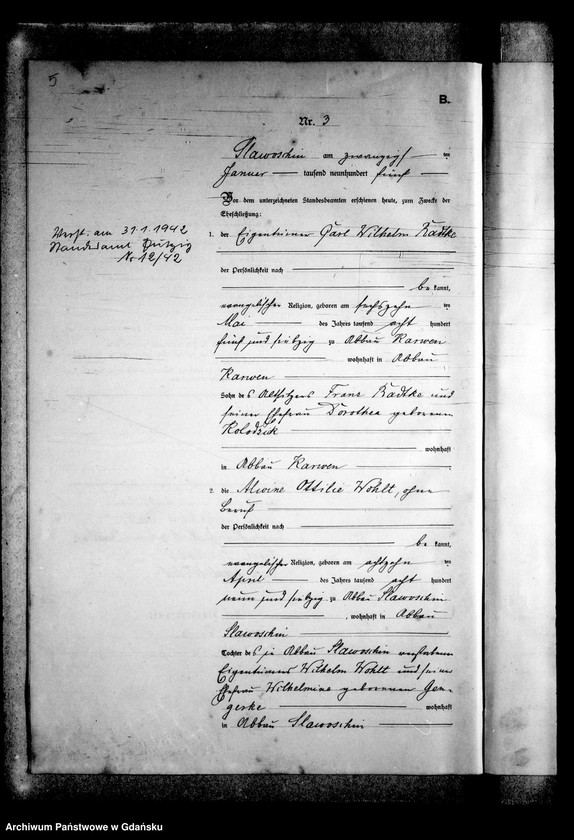 5
B.
Nr. 3
Slawoschin am zwanzigsten
Januar tausend neunhundert fünf
Vor dem unterzeichneten Standesbeamten erschienen heute, zum Zwecke der
Eheschließung:
1. der Eigentümer Carl Wilhelm Radtke
der Persönlichkeit nach
be kannt,
evangelischer Religion, geboren am sechszehn ten
Mai des Jahres tausend acht hundert
fünf und siebzig zu Abbau Karwen
wohnhaft in Abbau
Karwen
Sohn des Altsitzers Franz Radtke und
seiner Ehefrau Dorothea geborenen
Kolodzik
wohnhaft
in Abbau Karwen
2. die Alwine Ottilie Wohlt, ohne
Beruf
der Persönlichkeit nach
be kannt,
evangelischer Religion, geboren am achtzehn ten
April des Jahres tausend acht hundert
neun und siebzig zu Abbau Slawoschin
, wohnhaft in Abbau
Slawoschin
Tochter des in Abbau Slawoschin verstorbenen
Eigentümers Wilhelm Wohlt und seiner
Ehefrau Wilhelmine geborenen Gen-
gerke wohnhaft
in Abbau Slawoschin
Verst. am 31.1.1942
Standesamt Putzig
Nr 12/42
Archiwum Państwowe w Gdańsku